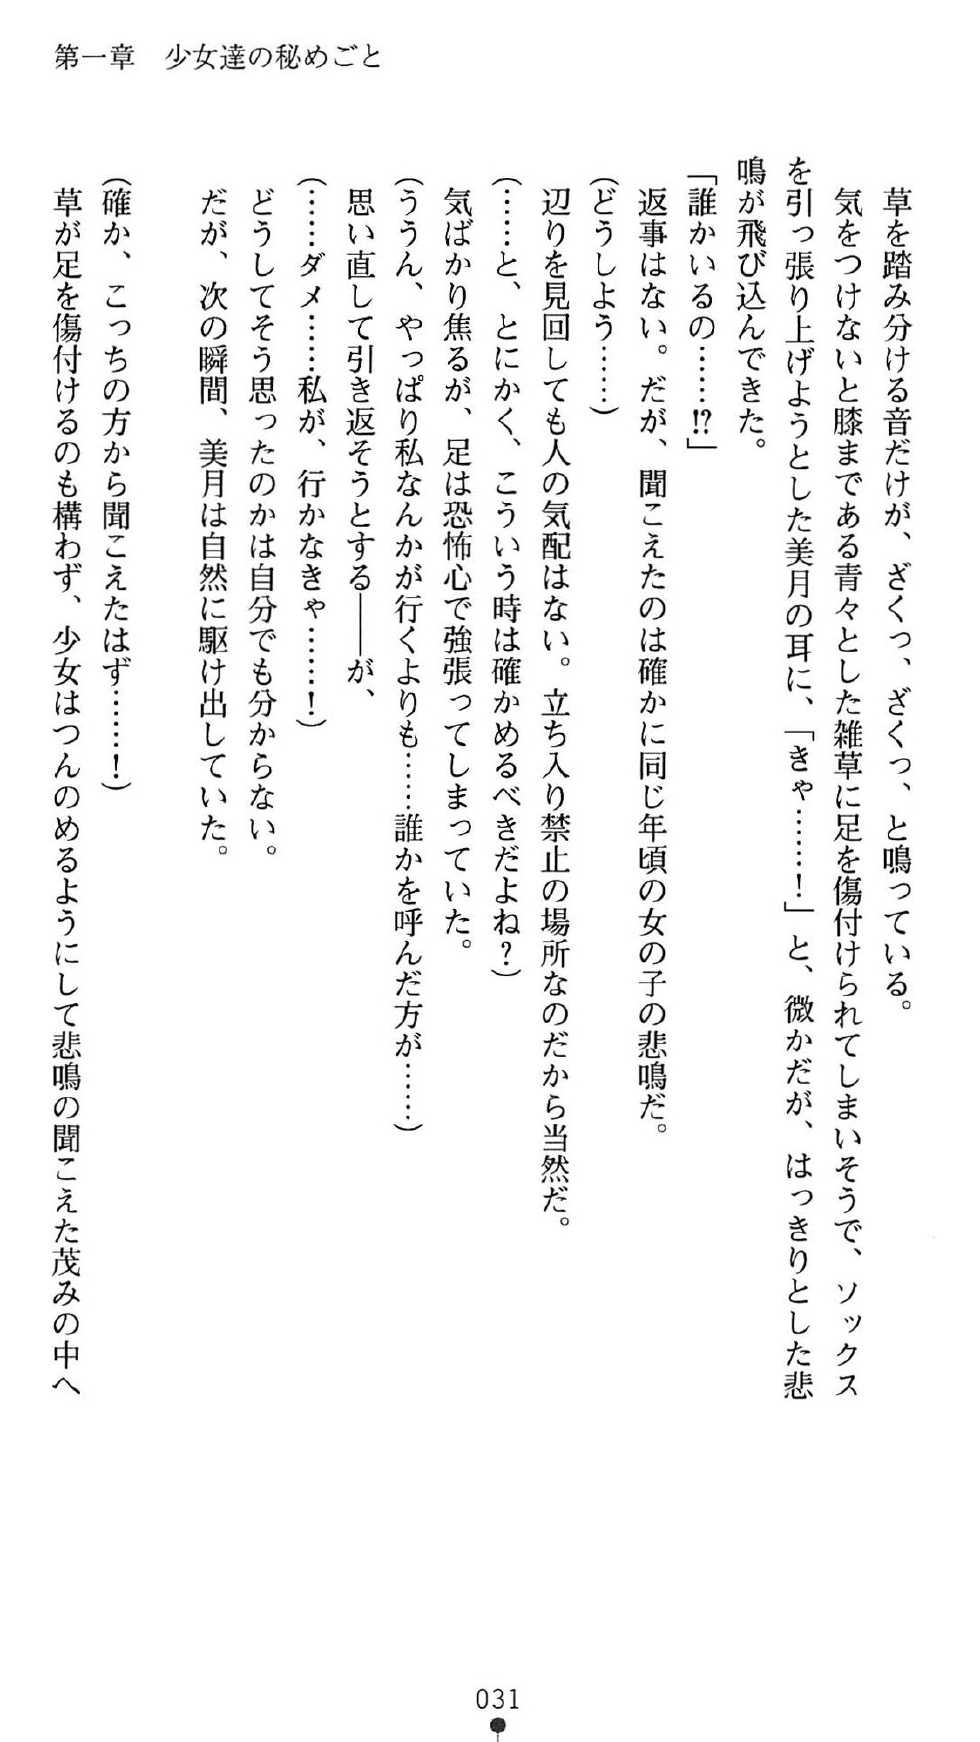 第一章　少女達の秘めごと
草を踏み分ける音だけが、ざくっ、ざくっ、と鳴っている。
気をつけないと膝まである青々とした雑草に足を傷付けられてしまいそうで、ソックス
を引っ張り上げようとした美月の耳に、「きゃ……！」と、微かだが、はっきりとした悲
鳴が飛び込んできた。
「誰かいるの……!?」
返事はない。だが、聞こえたのは確かに同じ年頃の女の子の悲鳴だ。
（どうしよう……）
辺りを見回しても人の気配はない。立ち入り禁止の場所なのだから当然だ。
（……と、とにかく、こういう時は確かめるべきだよね？）
気ばかり焦るが、足は恐怖心で強張ってしまっていた。
（ううん、やっぱり私なんかが行くよりも……誰かを呼んだ方が……）
思い直して引き返そうとする――が、
（……ダメ……私が、行かなきゃ……！）
どうしてそう思ったのかは自分でも分からない。
だが、次の瞬間、美月は自然に駆け出していた。
（確か、こっちの方から聞こえたはず……！）
草が足を傷付けるのも構わず、少女はつんのめるようにして悲鳴の聞こえた茂みの中へ
031